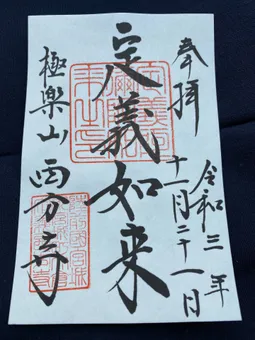 奉拝
令和三年
十一月二十一日
定義如来
極楽山西方寺